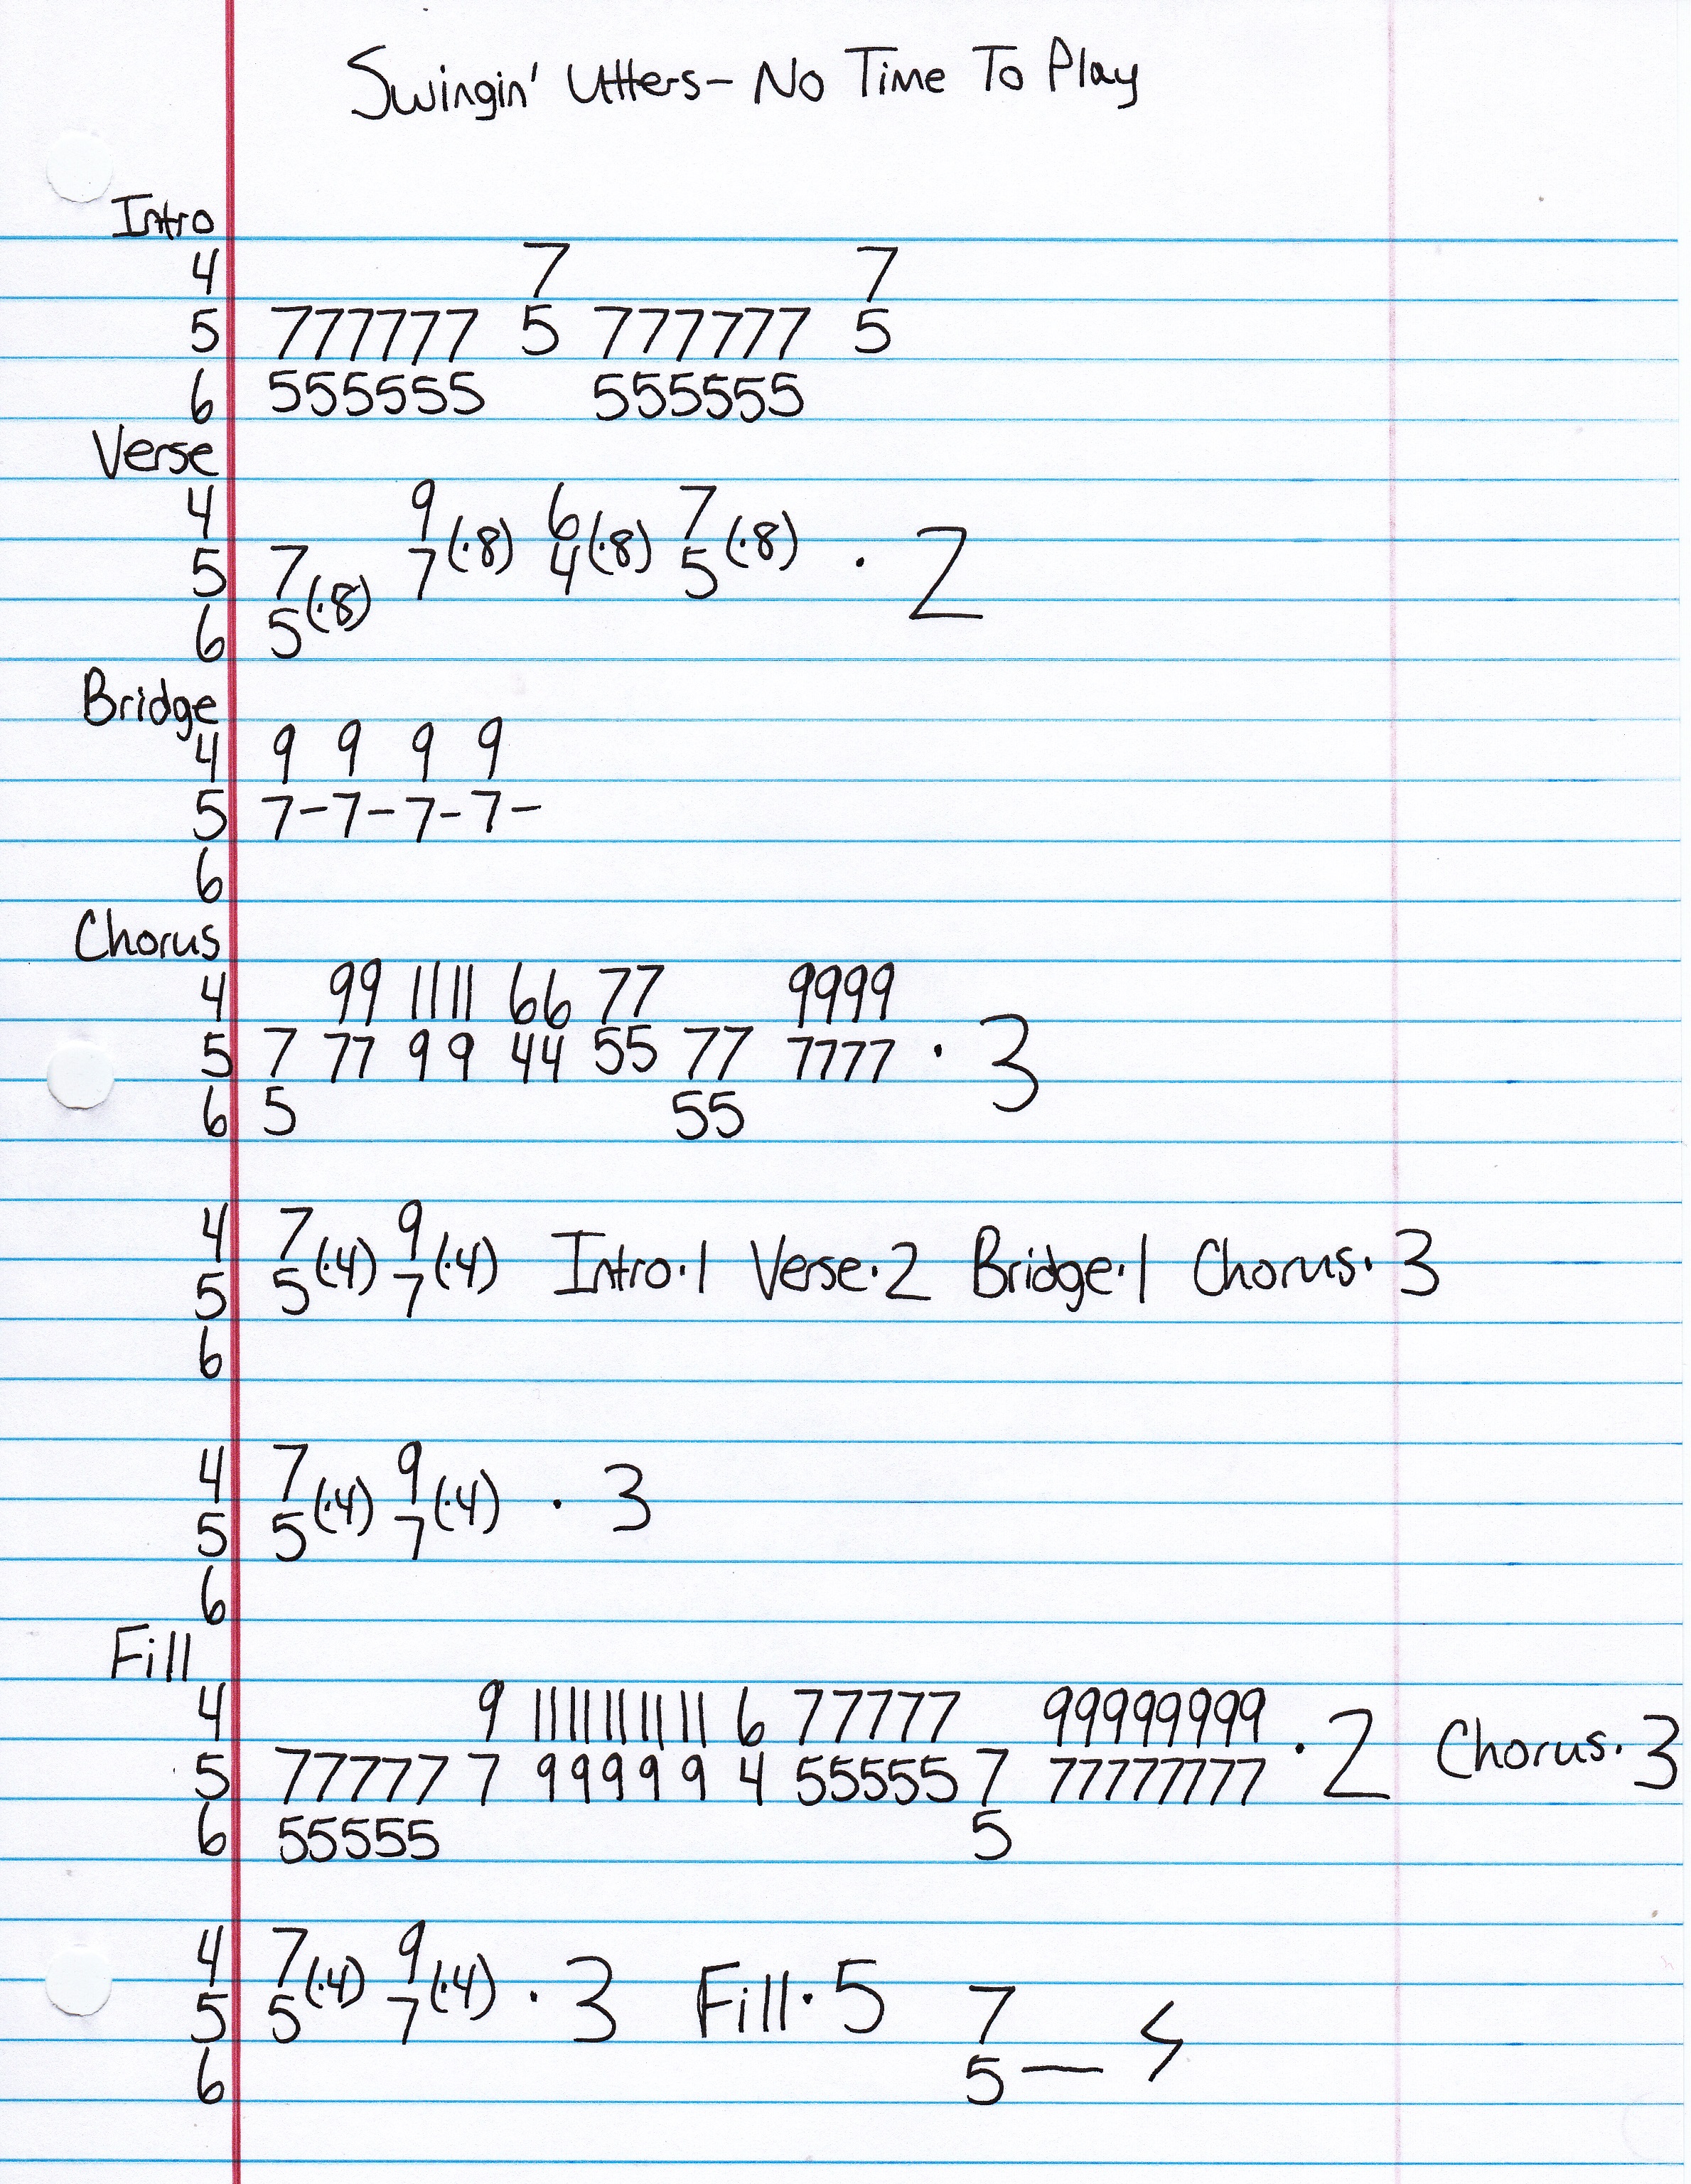 Swingin' Utters - No Time To Play
Intro
4 7 7
5 777777 5 777777 5
6 555555 555555
Verse
4 9 6 7
5 7 7(·8) 4(·8) 5(·8) · 2
6 5(·8)
Bridge
4 9 9 9 9
5 7-7-7-7-
6
Chorus
4 99 1111 66 77 9999
5 7 77 99 44 55 77 7777 · 3
6 5 55
4 7 9
5 5(·4) 7(·4) Intro·1 Verse·2 Bridge·1 Chorus·3
6
4 7 9
5 5(·4) 7(·4) · 3
6
Fill
4 9 1111111111 6 77777 99999999
5 77777 7 99999 4 55555 7 77777777 · 2 Chorus·3
6 55555 5
4 7 9
5 5(·4) 7(·4) · 3 Fill·5 7
6 5—